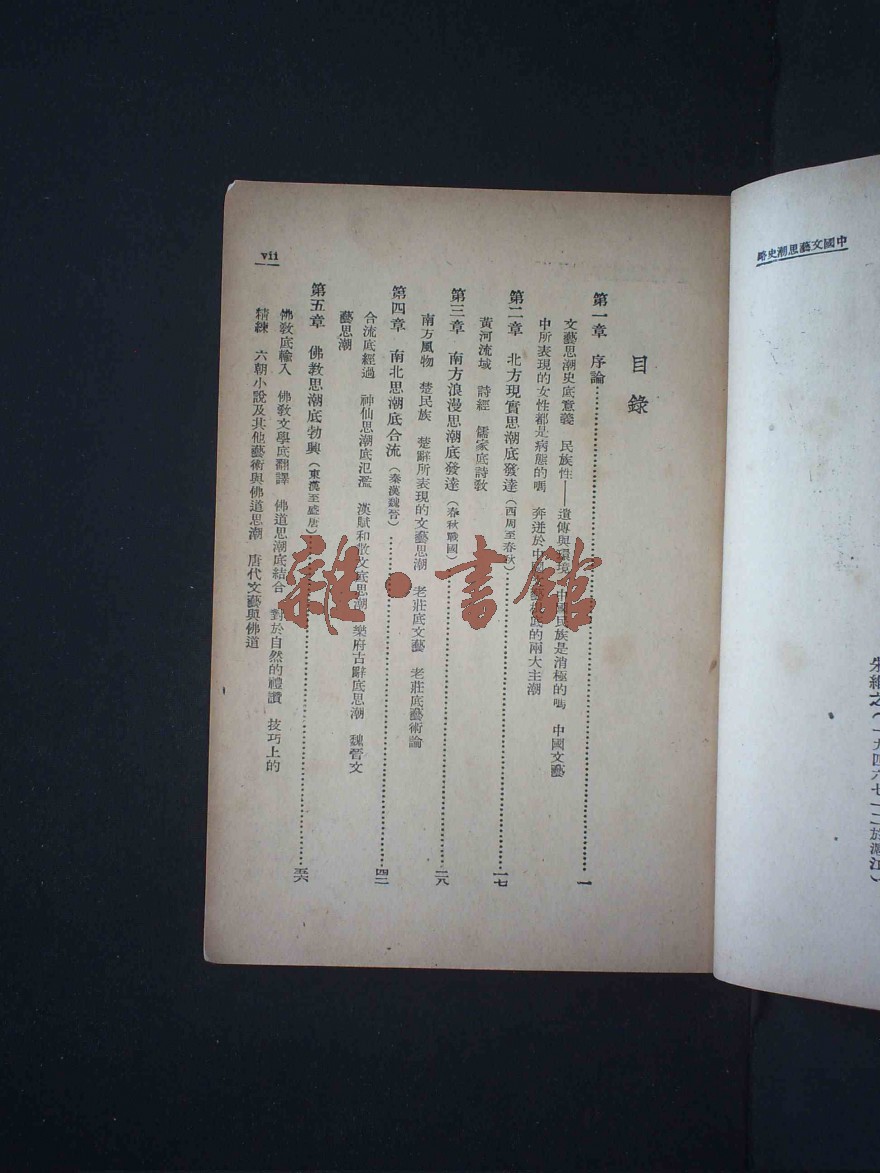 中國文藝思潮史略
朱維之(一九四六七一二於滬江)
目錄
第一章 序論……一
文藝思潮史底意義 民族性——遺傳與環境 中國民族是消極的嗎 中國文藝
中所表現的女性都是病態的嗎 奔迸於中國文藝 底的兩大主潮
第二章 北方現實思潮底發達(西周至春秋)……一七
黃河流域 詩經 儒家底詩教
第三章 南方浪漫思潮底發達(春秋戰國)……二八
南方風物 楚民族 楚辭所表現的文藝思潮 老莊底文藝 老莊底藝術論
第四章 南北思潮底合流(秦漢魏晉)……四二
合流底經過 神仙思潮底氾濫 漢賦和散文底思潮 樂府古辭底思潮 魏晉文
藝思潮
第五章 佛教思潮底勃興(東漢至盛唐)……五六
佛教底輸入 佛教文學底翻譯 佛道思潮底結合 對於自然的禮讚 技巧上的
精練 六朝小說及其他藝術與佛道思潮 唐代文藝與佛道
vii
雜·書館